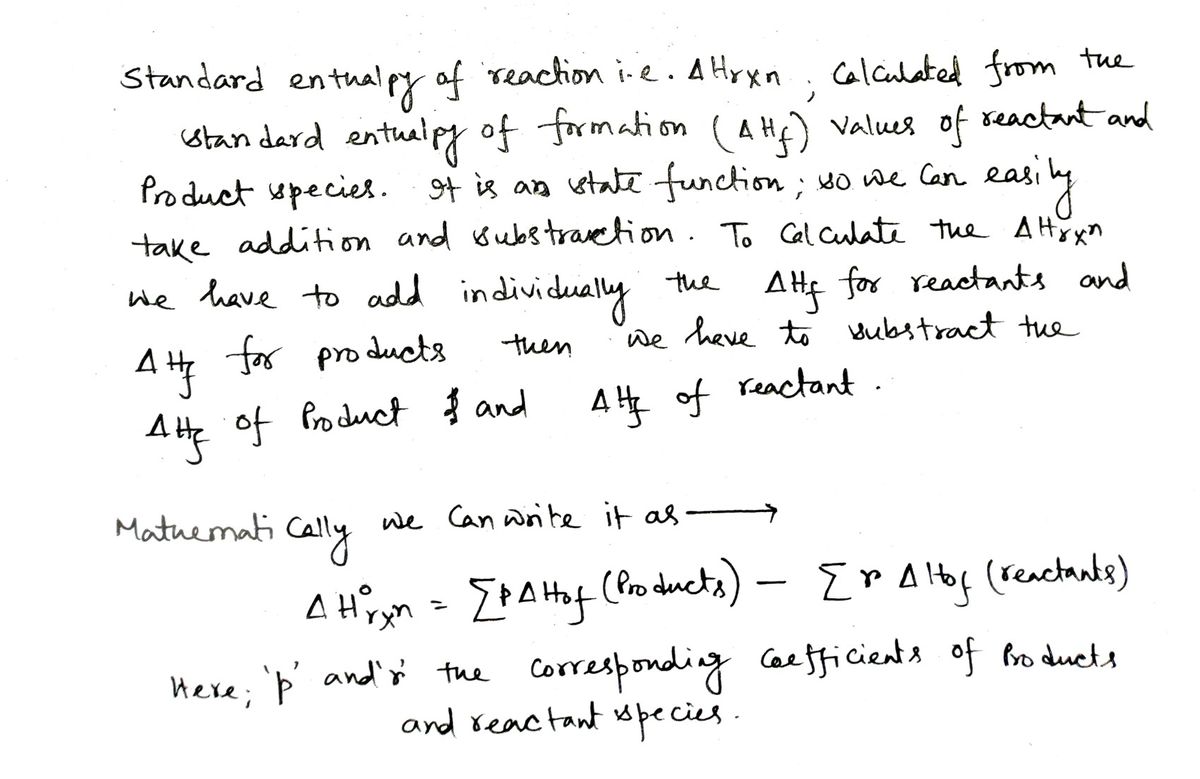 Standard enthalpy of reaction i.e. ΔHrxn, Calculated from the
standard enthalpy of formation (ΔHf) values of reactant and
Product species. It is an state function; so we can easily
take addition and substraction. To Calculate the ΔHrxn
we have to add individually the ΔHf for reactants and
ΔHf for products then we have to substract the
ΔHf of Product and ΔHf of reactant.
Mathematically we can write it as →
ΔH°rxn = ΣpΔHof (Products) – Σr ΔHof (reactants)
Here; 'p' and 'r' the corresponding coefficients of Products
and reactant species.